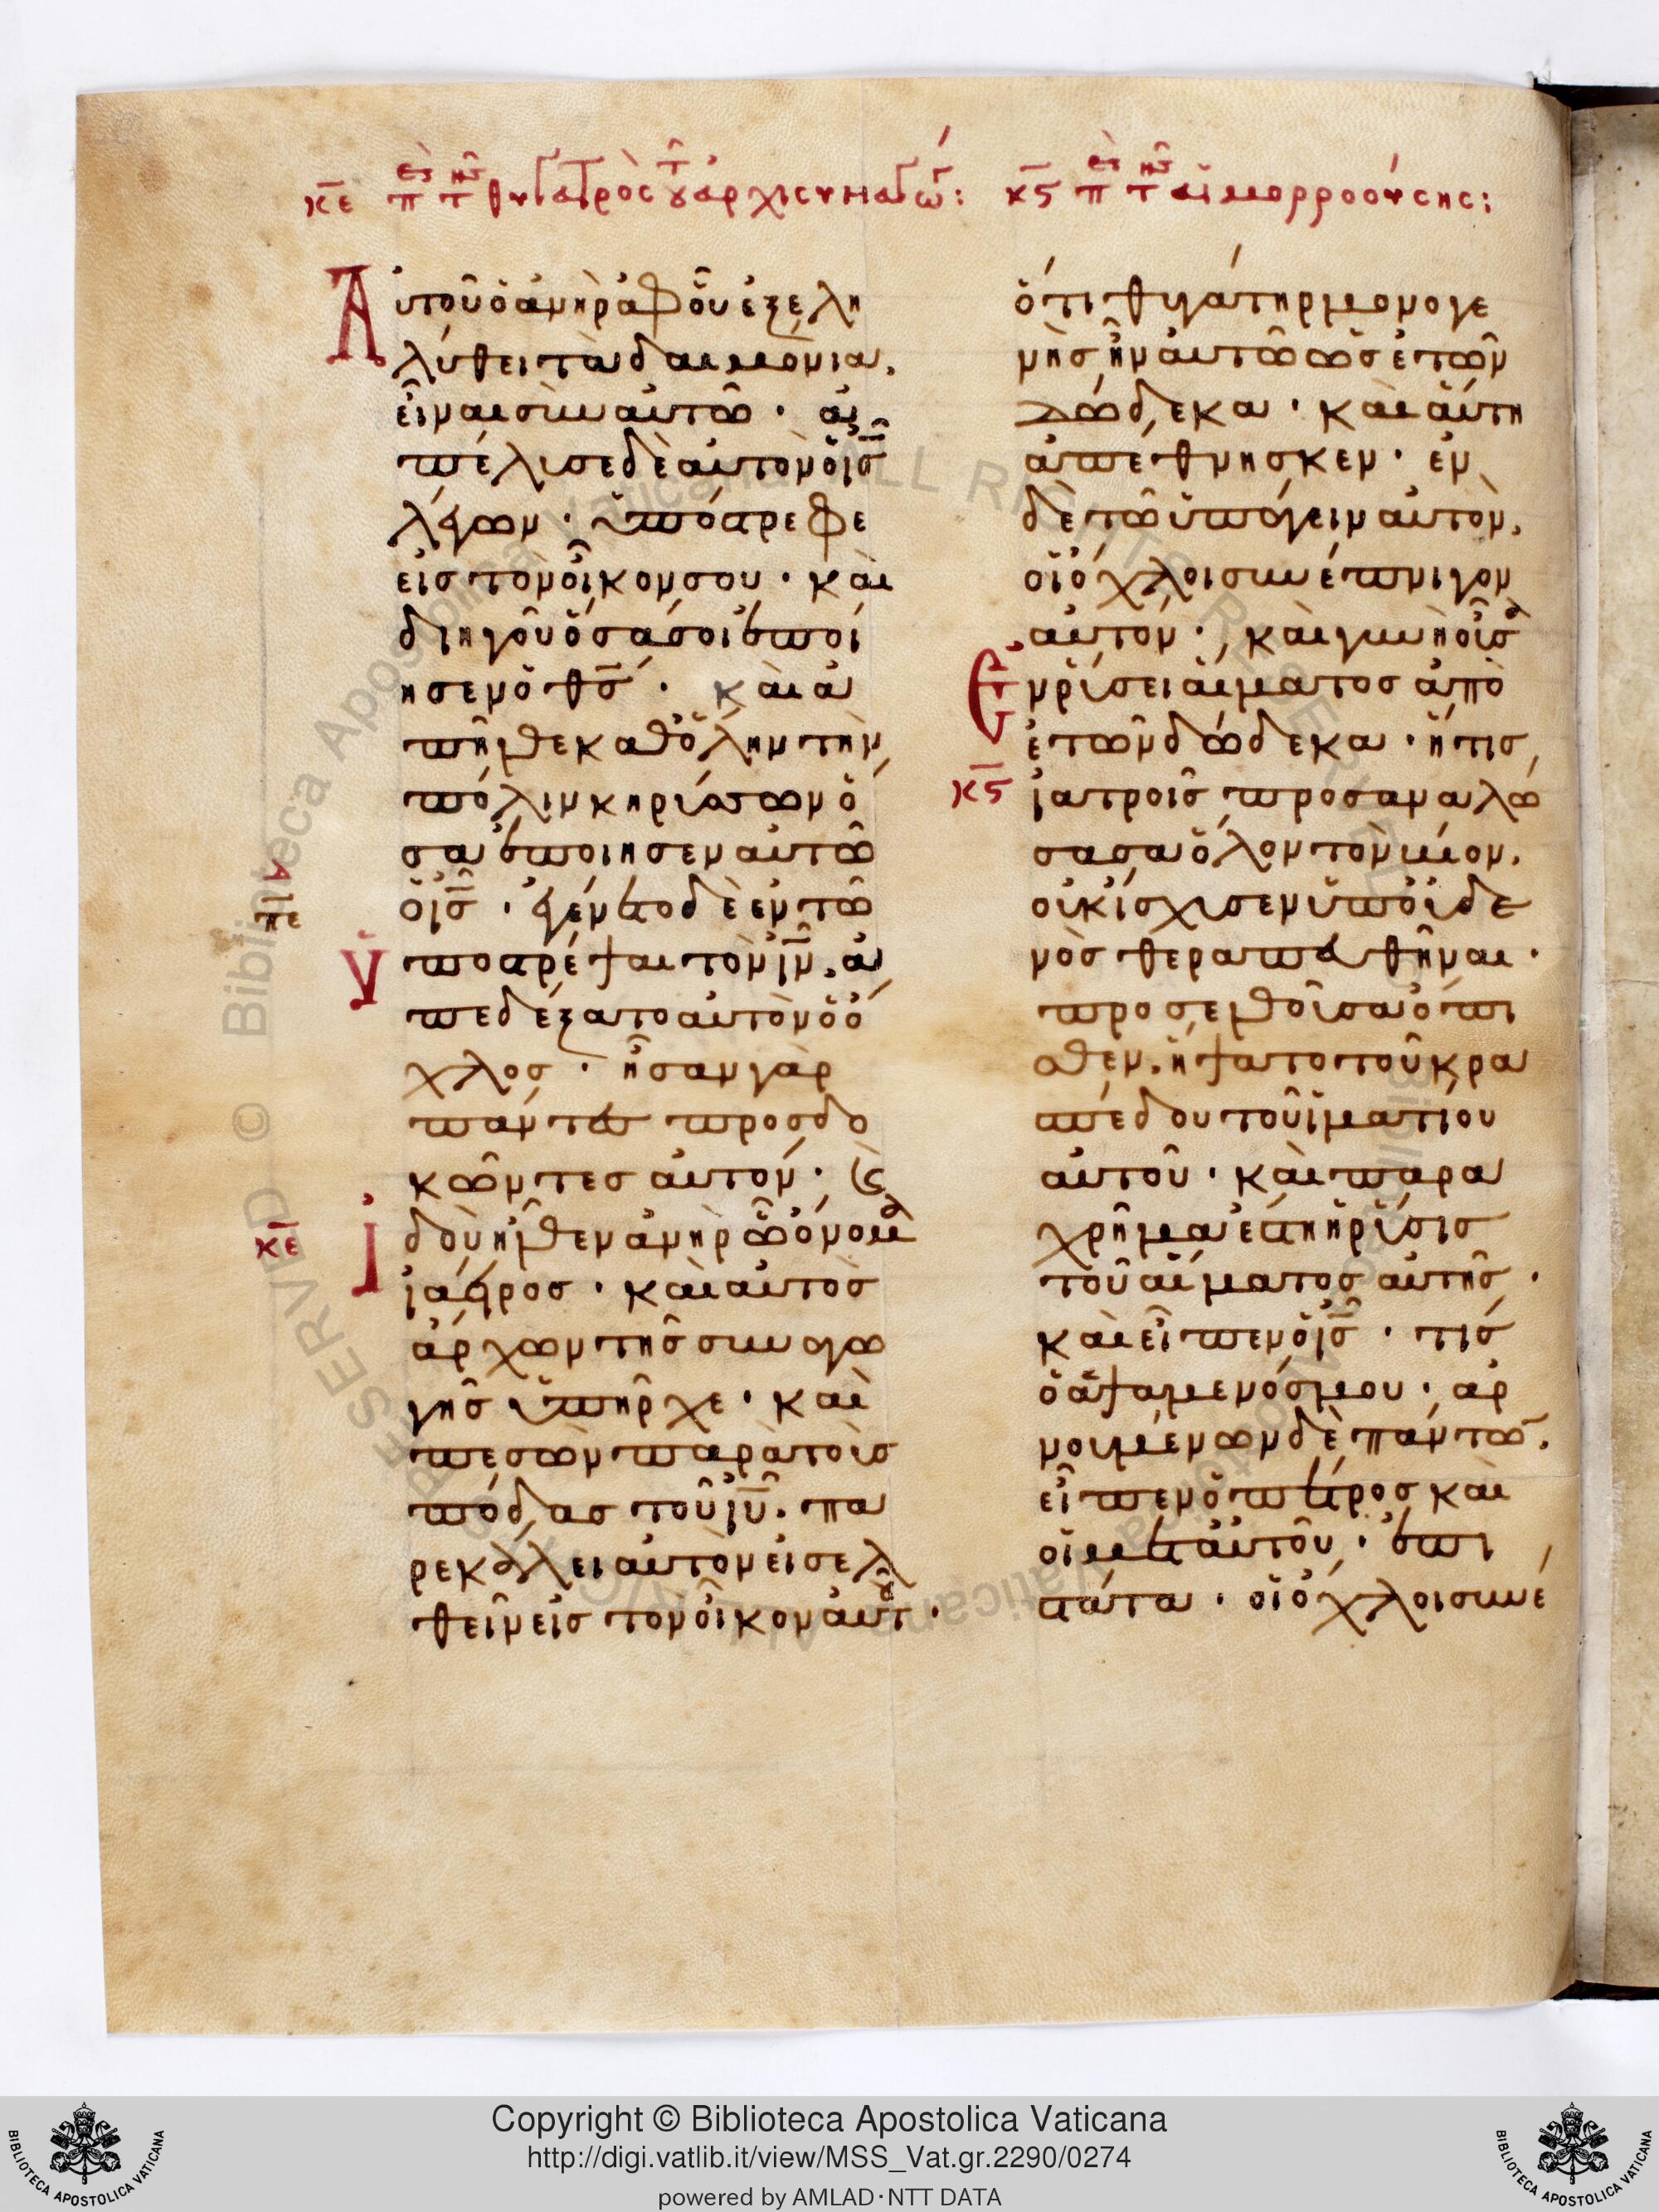 κε π τ θυγατρὸς τοῦ ἀρχισυναγώ: κς π τ αἱμορροούσης:
Αὐτοῦ ὁ ἀνὴρ ἀφ οὗ ἐξελη
λύθει τὰ δαιμόνια,
εἶναι σὺν αὐτῶ · ἀ
πέλυσε δὲ αὐτὸν ὁ ις
λέγων · ὑπόστρεφε
εἰς τὸν οἶκον σου · καὶ
διηγοῦ ὅσα σοι ἐποί
ησεν ὁ θς · καὶ ἀ
πῆλθε καθ ὅλην τὴν
πόλιν κηρύσσων ὅ
σα ἐποίησεν αὐτῶ
ὁ ις · ἐγένετο δὲ ἐν τῶ
ὑποστρέψαι τὸν ιν, ἀ
πεδέξατο αὐτὸν ὁ ὄ
χλος · ἦσαν γὰρ
πάντες προσδο
κῶντες αὐτόν · καὶ
κε
ἰδοὺ ἦλθεν ἀνὴρ ὧ ὄνομα
ἰάειρος · καὶ αὐτὸς
ἄρχων τῆς συναγω
γῆς ὑπῆρχε · καὶ
πεσὼν παρὰ τοὺς
πόδας τοῦ ιυ, πα
ρεκάλει αὐτὸν εἰσελ
θεῖν εἰς τὸν οἶκον αὐτοῦ ·
ὅτι θυγάτηρ μονογε
νὴς ἦν αὐτῶ ὡς ἐτῶν
δώδεκα · καὶ αὕτη
ἀπέθνησκεν · ἐν
δὲ τῶ ὑπάγειν αὐτὸν,
οἱ ὄχλοι συνέπνιγον
αὐτόν · καὶ γυνὴ οὖσα
ἐν ῥύσει αἵματος ἀπὸ
ἐτῶν δώδεκα · ἥτις
κς
ἰατροῖς προσαναλώ
σασα ὅλον τὸν βίον,
οὐκ ἴσχυσεν ὑπ οὐδε
νὸς θεραπευθῆναι ·
προσελθοῦσα ὄπι
σθεν, ἥψατο τοῦ κρα
σπέδου τοῦ ἱματίου
αὐτοῦ · καὶ παρα
χρῆμα ἔστη ἡ ῥύσις
τοῦ αἵματος αὐτῆς ·
καὶ εἶπεν ὁ ις · τίς
ὁ ἁψάμενός μου · ἀρ
νουμένων δὲ πάντων,
εἶπεν ὁ πέτρος καὶ
οἱ μετ αὐτοῦ · ἐπι
στάτα · οἱ ὄχλοι συνέ
Copyright © Biblioteca Apostolica Vaticana
http://digi.vatlib.it/view/MSS_Vat.gr.2290/0274
powered by AMLAD·NTT DATA